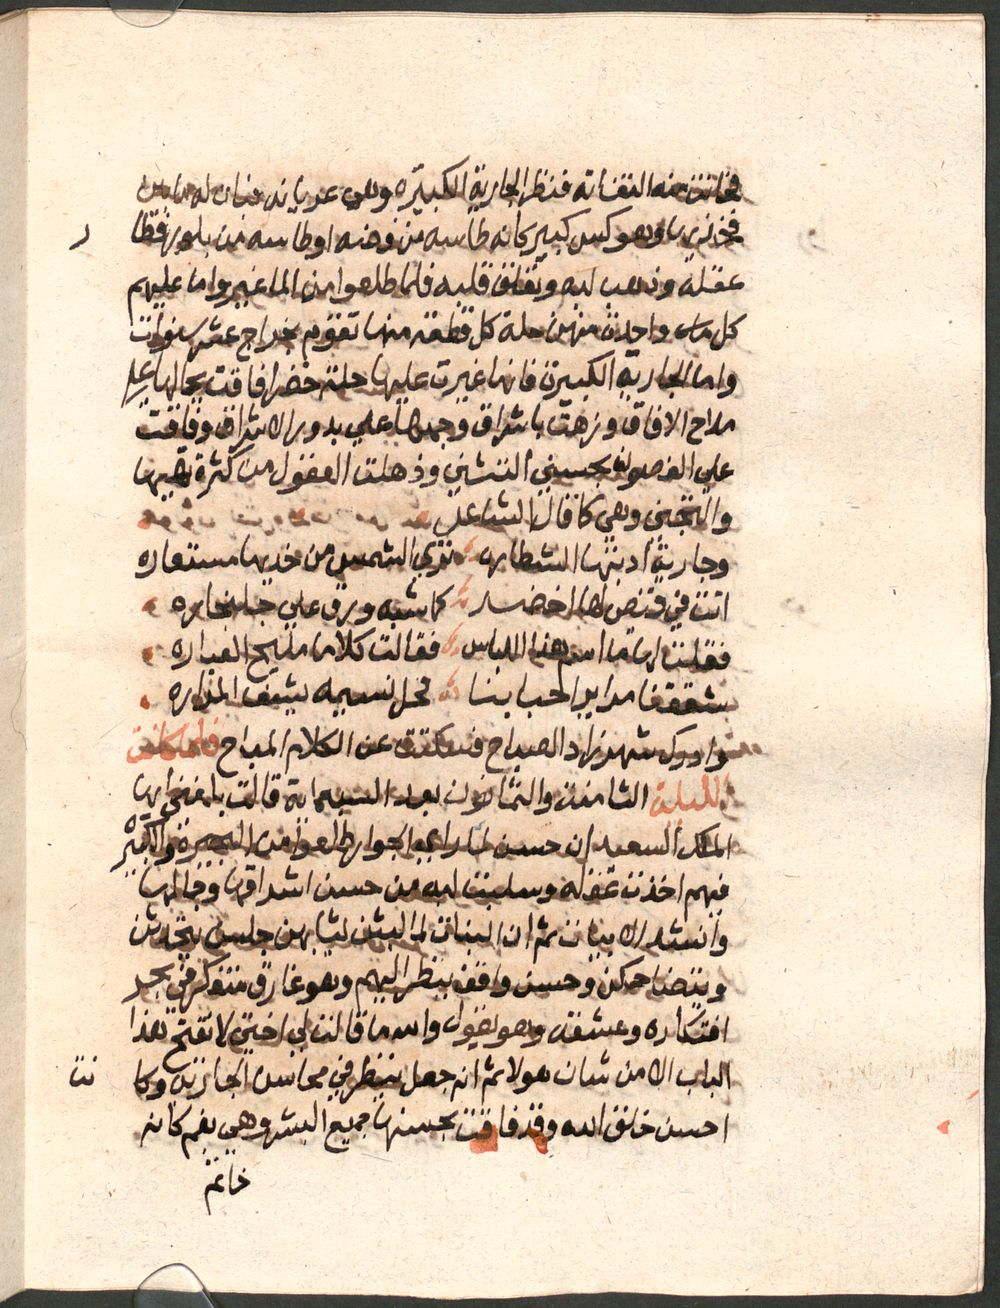 فحانت منه التفاته فنظر الجارية الكبيره وهي عريانه فبان له ما بين
فخذيها وهو كس كبير كانه طاسه من فضه او طاسه من بلور فطار
عقله وذهب لبه وتفلق قلبه فلما طلعوا من الما غيروا ما عليهم
كل واحدة منهن حلة كل قطعة منها تقوم بخراج عشر سنوات
واما الجارية الكبيرة فانها غيرت عليها حلة خضرا فاقت بجمالها علي
ملاح الافاق وزهت باشراق وجهها علي بدور الاشراق وفاقت
علي الغصون بحسن التثني وذهلت العقول من كثرة تيهها
والتجني وهي كما قال الشاعر
وجارية ادبتها الشطاره تري الشمس من خديها مستعاره
اتت في قميص لها اخضر كما شبه ورق علي جلناره
فقلت لها ما اسم هذا اللباس فقالت كلاما مليح العباره
شققنا مراير احبابنا فحل نسيمه يشق المراره
وادرك شهرزاد الصباح فسكتت عن الكلام المباح فلما كانت
الليلة الثامنة والثمانون بعد السبعماية قالت بلغني ايها
الملك السعيد ان حسن لما راي الجوار طلعوا من البحيرة والكبيره
فيهم اخذت عقله وسلبت لبه من حسن اشراقها وجمالها
وانشد الابيات ثم ان البنات لما لبسن ثيابهن جلسن يتحدثن
ويتضاحكن وحسن واقف ينظر اليهم وهو غارق متفكر في بحر
افتكاره وعشقه وهو يقول والله ما قالت لي اختي لا تفتح هذا
الباب الا من شان هولا ثم انه جعل ينظر في محاسن الجارية وكانت
احسن خلق الله وقد فاقت بحسنها جميع البشر وهي بفم كانه
خاتم